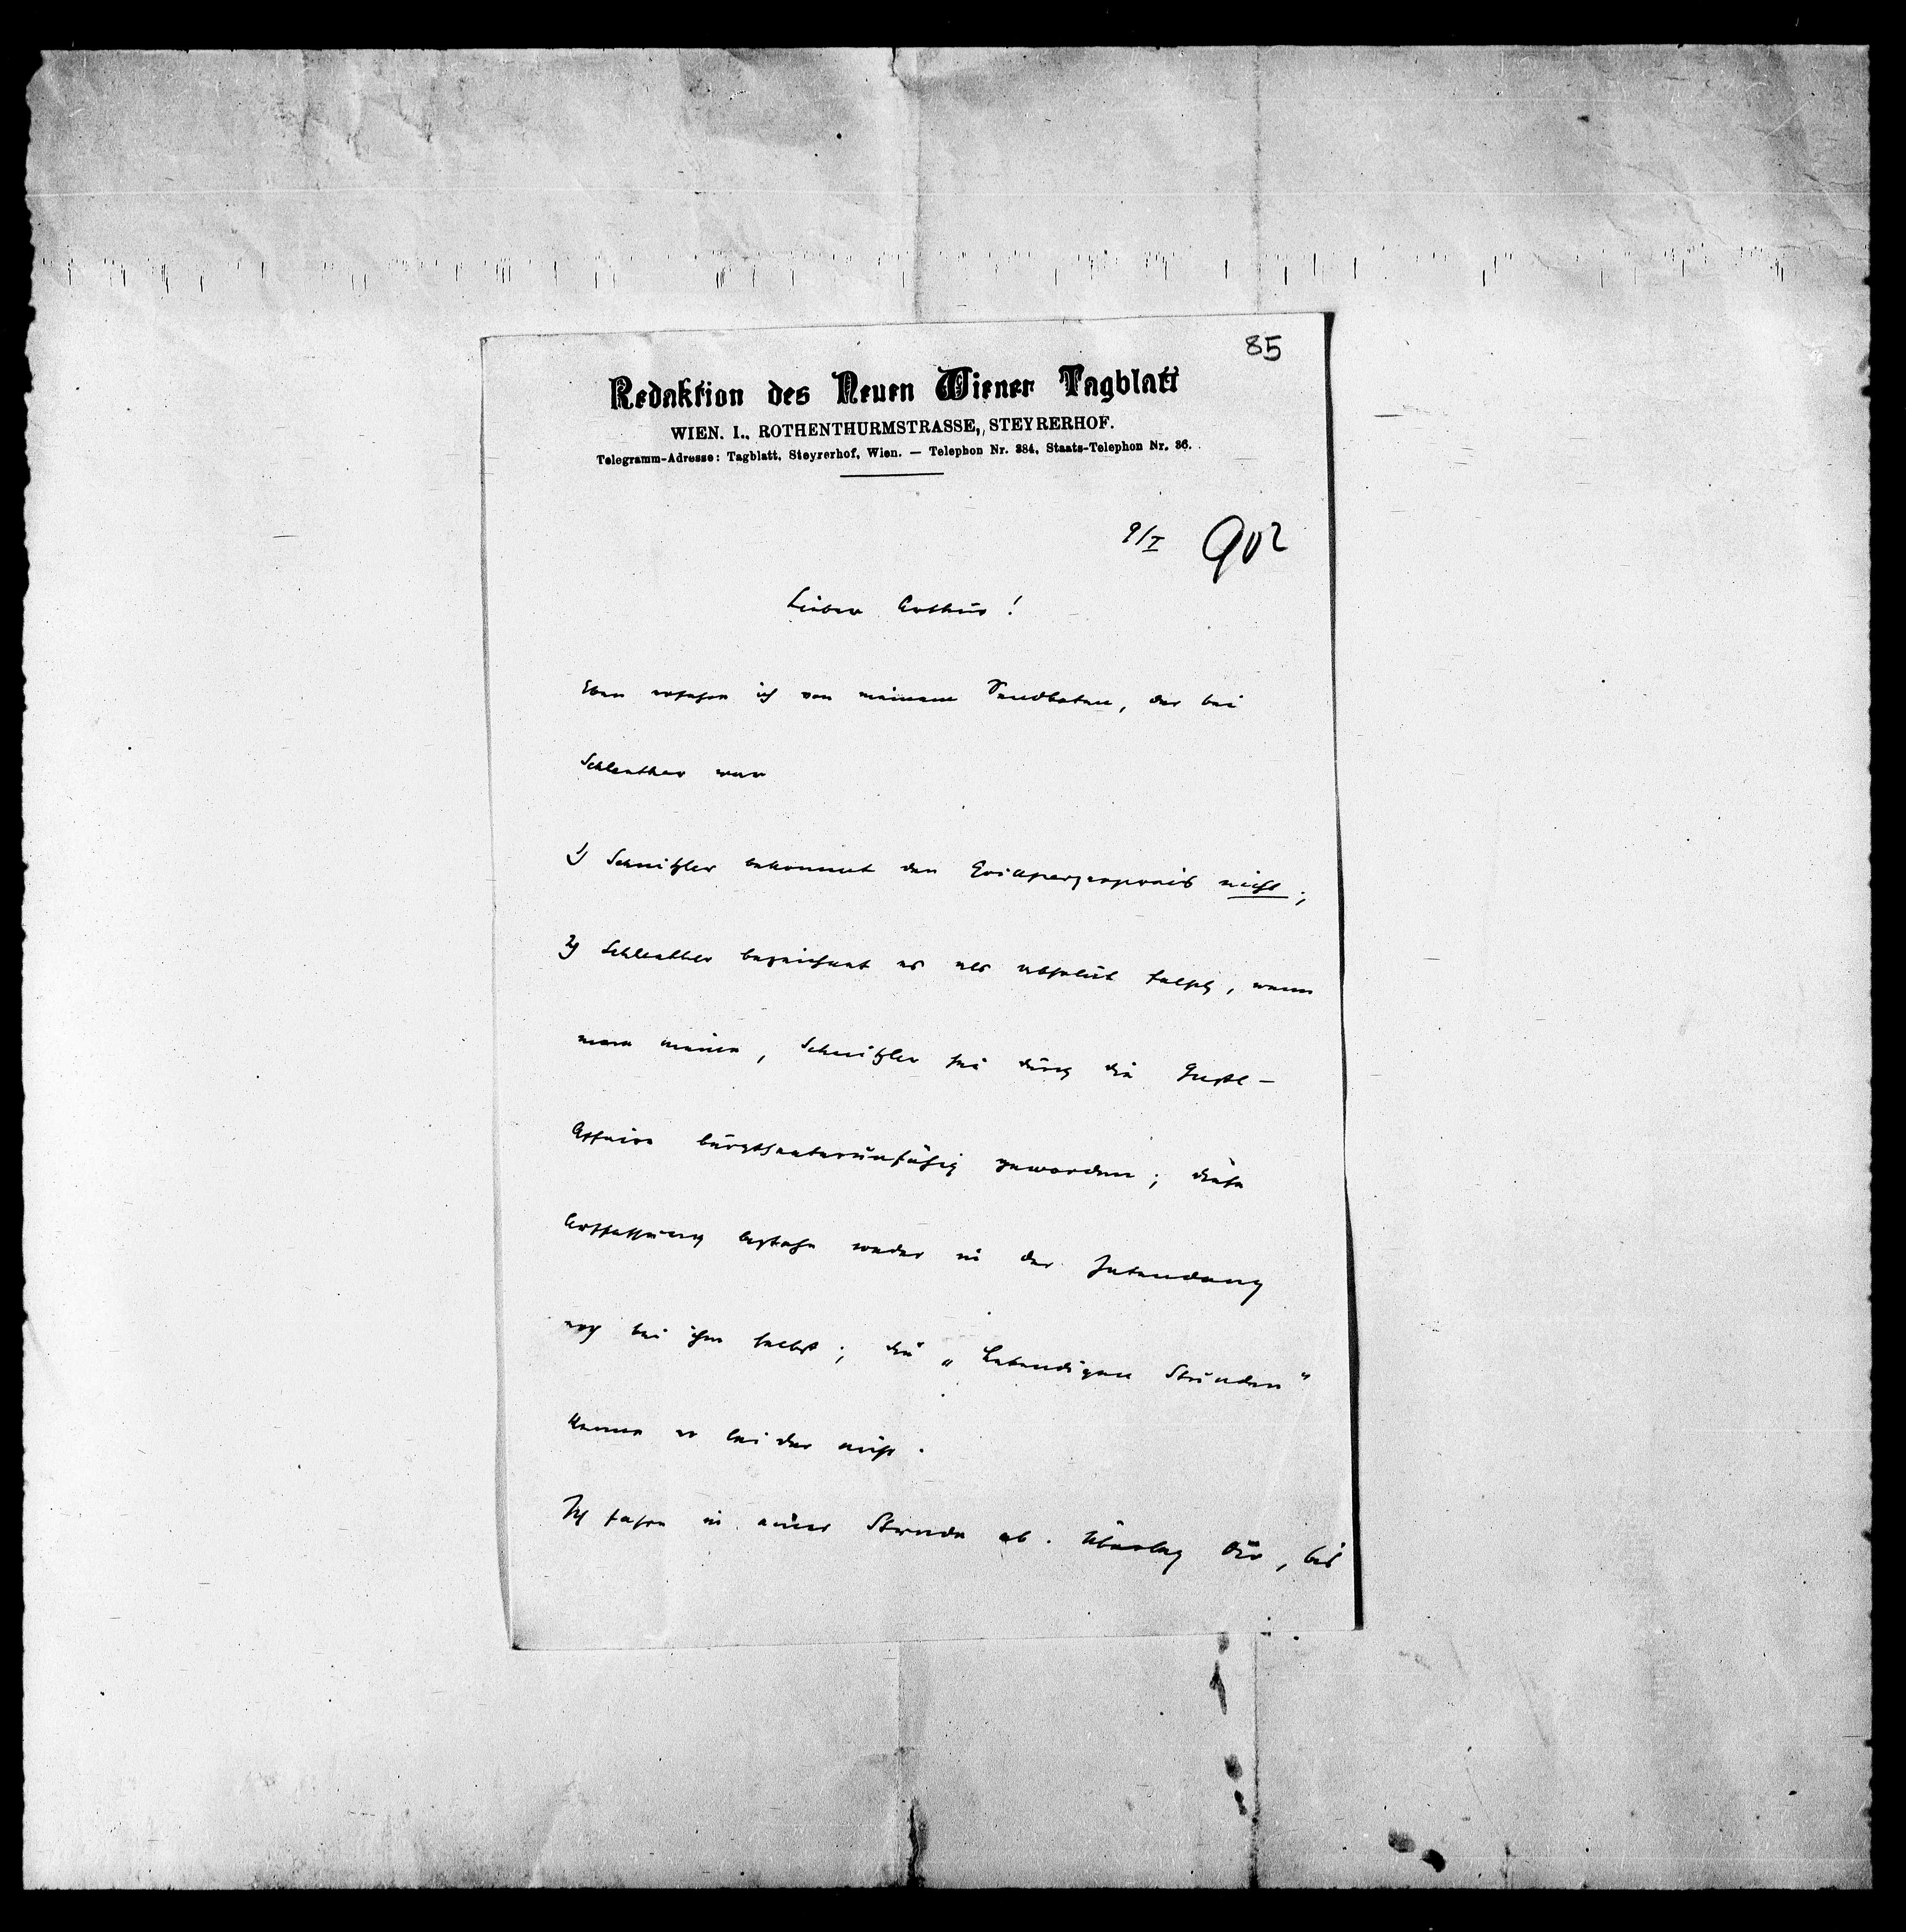 85
Redaktion des Neuen Wiener Tagblatt
WIEN. I., ROTHENTHURMSTRASSE, STEYRERHOF.
Telegramm-Adresse: Tagblatt, Steyrerhof, Wien. — Telephon Nr. 384, Staats-Telephon Nr. 36.
9/I 902
Lieber Arthur!
Eben erfahre ich von meinem Sendboten, der bei
Schlenther war
1) Schnitzler bekommt den Grillparzerpreis nicht;
2) Schlenther bezeichnet es als absolut falsch, wenn
man meine, Schnitzler sei durch die Gustl-
Affaire burgtheaterunfähig geworden; diese
Auffassung bestehe weder in der Intendanz
noch bei ihm selbst; die „Lebendigen Stunden"
kenne er leider nicht.
Ich fahre in einer Stunde ab. Überleg Dir, bis